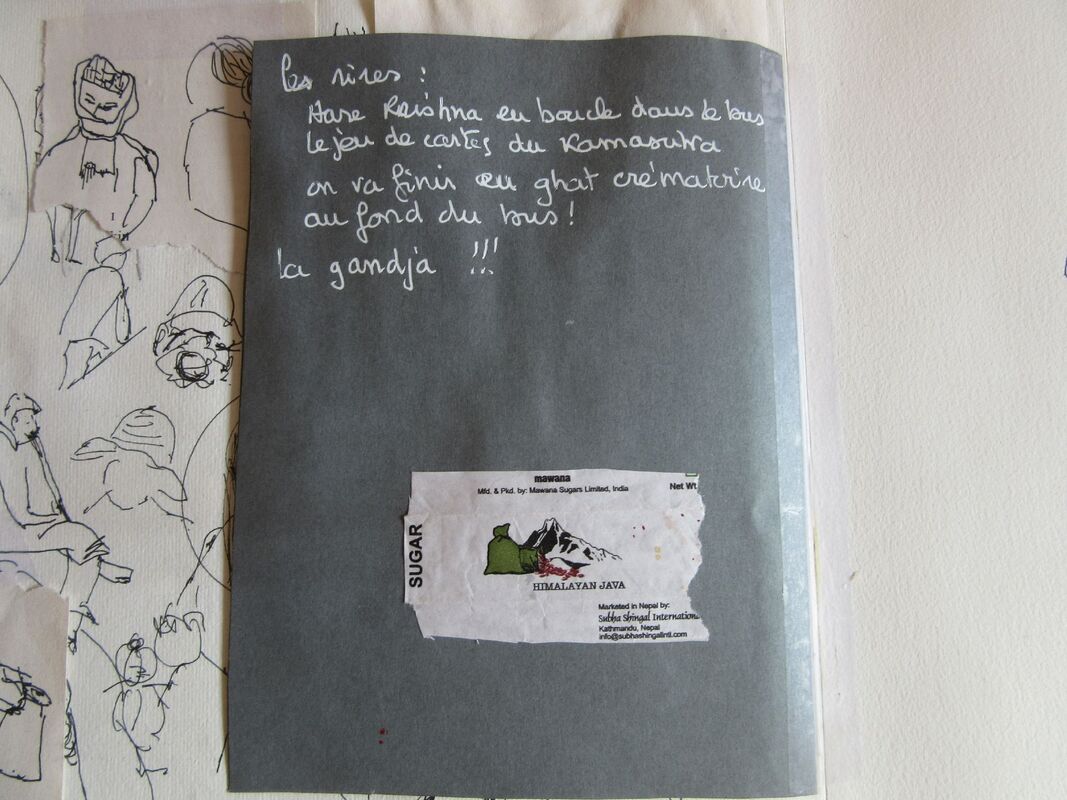 les rires :
Hare Krishna en boucle dans le bus
le jeu de cartes du Kamasutra
on va finir en ghat crématoire
au fond du bus !
la gandja !!!
mawana
Mfd. & Pkd. by: Mawana Sugars Limited, India
Net Wt
SUGAR
HIMALAYAN JAVA
Marketed in Nepal by:
Subha Shingal International
Kathmandu, Nepal
info@subhashingalintl.com